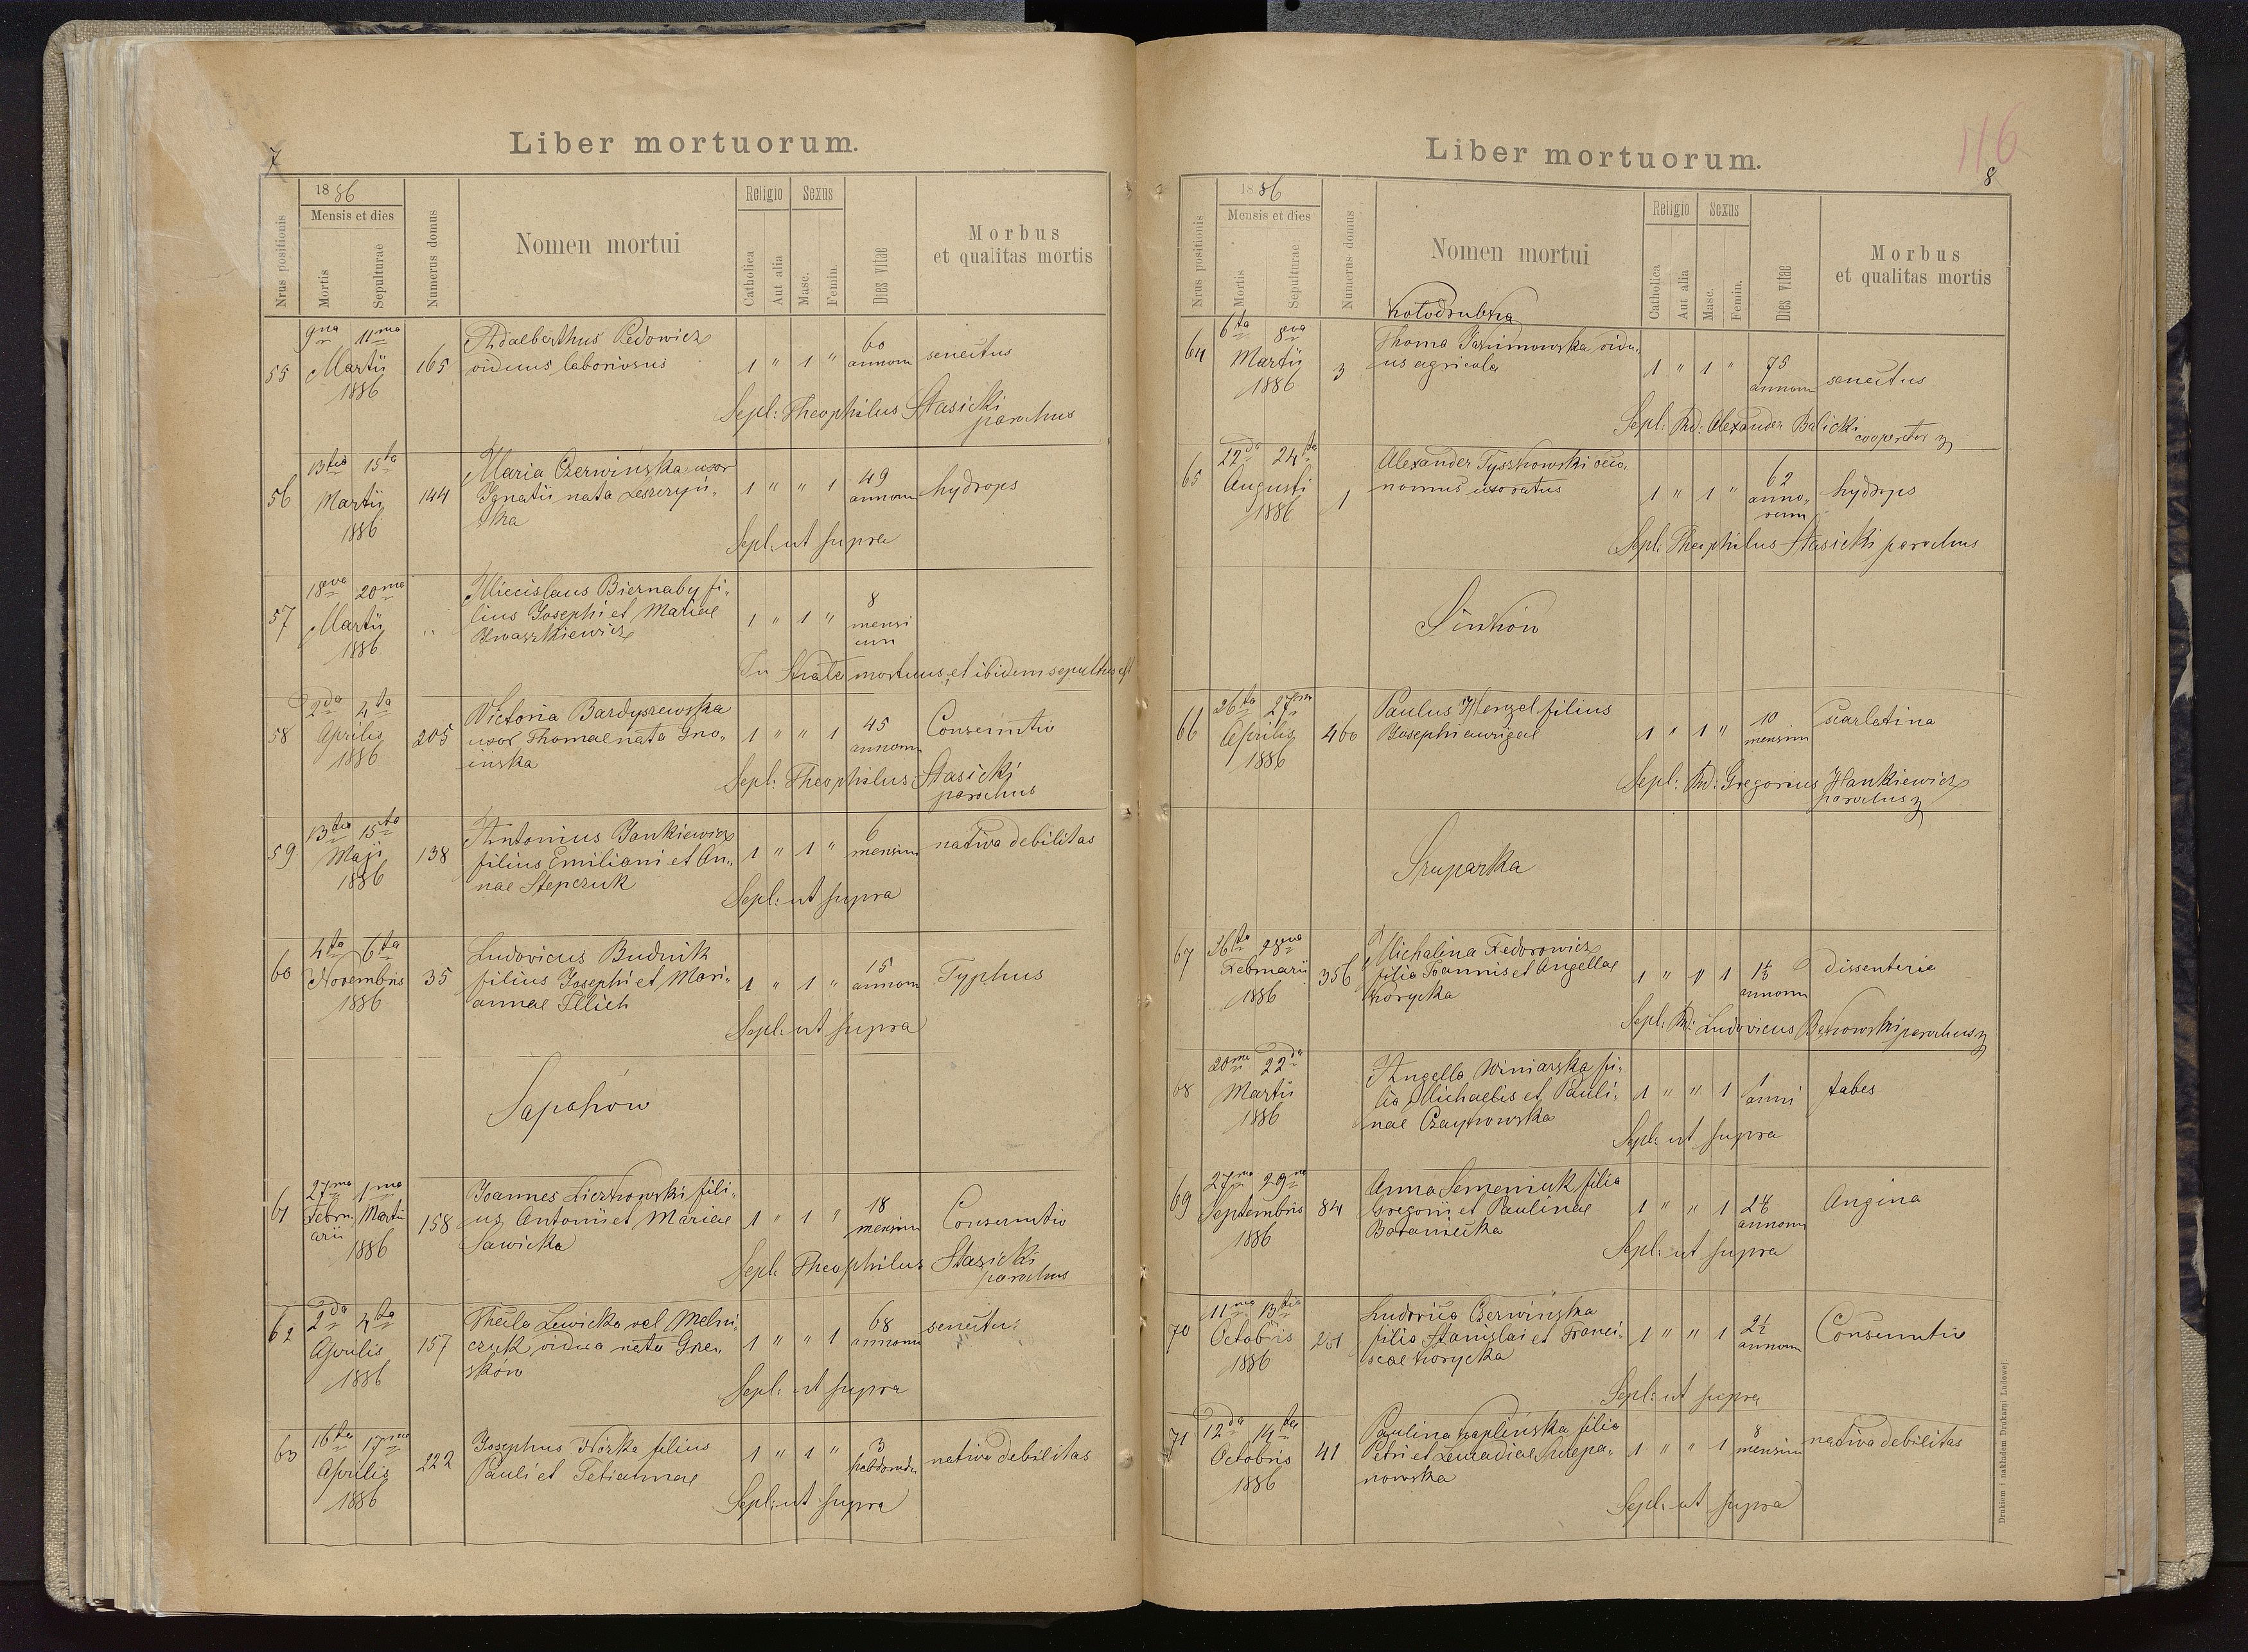 7
Liber mortuorum.
Nrus positionis
1886
Mensis et dies
Mortis
Sepulturae
Numerus domus
Nomen mortui
Religio
Catholica
Aut alia
Sexus
Masc.
Femin.
Dies vitae
Morbus
et qualitas mortis
55
9na 11ma
Martii
1886
165
Adalberthus Pedowicz
viduus laboriosus
1 " 1 "
60
annorum
senectus
Sepl: Theophilus Stasicki
parochus
56
13tia 15ta
Martii
1886
144
Maria Czerwińska uxor
Ignatii nata Leszczyń-
ska
1 " " 1
49
annorum
hydrops
Sepl: ut supra
57
18va 20ma
Martii
1886
"
Miecislaus Biernaby fi-
lius Josephi et Mariae
Iwaszkiewicz
1 " 1 "
8
mensi
um
In Strata mortuus et ibidem sepultus est
58
2da 4ta
Aprilis
1886
205
Victoria Bardyszewska
uxor Thomae nata Gno-
ińska
1 " " 1
45
annorum
Consumtio
Sepl: Theophilus Stasicki
parochus
59
13tia 15ta
Maji
1886
138
Antonius Jankiewicz
filius Emiliani et An-
nae Stepczuk
1 " 1 "
6
mensium
nativa debilitas
Sepl: ut supra
60
4ta 6ta
Novembris
1886
35
Ludovicus Budnik
filius Josephi et Mari-
annae Illich
1 " 1 "
15
annorum
Typhus
Sepl: ut supra
Sapohów
61
27ma 1ma
Febru- Martii
arii
1886
158
Joannes Liczkowski fili-
us Antonii et Mariae
Sawicka
1 " 1 "
18
mensium
Consumtio
Sepl: Theophilus Stasicki
parochus
62
2da 4ta
Aprilis
1886
157
Thecla Lewicka vel Melni-
czuk vidua nata Gre-
sków
1 " " 1
68
annorum
senectus
Sepl: ut supra
63
16ta 17ma
Aprilis
1886
222
Josephus Worka filius
Pauli et Tetiannae
1 " 1 "
3
hebdomadae
nativa debilitas
Sepl: ut supra
116
8
Liber mortuorum.
Nrus positionis
1886
Mensis et dies
Mortis
Sepulturae
Numerus domus
Nomen mortui
Religio
Catholica
Aut alia
Sexus
Masc.
Femin.
Dies vitae
Morbus
et qualitas mortis
Kołodrubka
64
6ta 8va
Martii
1886
3
Thoma Jakimowska vidu-
us agricola
1 " 1 "
75
annorum
senectus
Sepl: Rd: Alexander Balicki
cooperator
65
22da 24ta
Augusti
1886
1
Alexander Tyszkowski oeco-
nomus uxoratus
1 " 1 "
62
anno-
rum
hydrops
Sepl: Theophilus Stasicki parochus
Sinków
66
26ta 27ma
Aprilis
1886
460
Paulus Menzel filius
Josephi aurigae
1 " 1 "
10
mensium
scarlatina
Sepl: Rd: Gregorius Hankiewicz
parochus
Szuparka
67
26ta 28va
Februarii
1886
356
Michalina Fedorowicz
filia Joannis et Angellae
Korycka
1 " " 1
annorum
dissenteria
Sepl: Rd: Ludovicus parochus
68
20ma 22da
Martii
1886
Angella Winiarska fi-
lia Michaelis et Pauli-
nae Czaykowska
1 " " 1
1
anni
tabes
Sepl: ut supra
69
27ma 29na
Septembris
1886
84
Anna Semeniuk filia
Gregorii et Paulinae
Boraniecka
1 " " 1
annorum
Angina
Sepl: ut supra
70
11ma 13tia
Octobris
1886
261
Ludovica Czerwińska
filia Stanislai et Franci-
scae Korycka
1 " " 1
2½
annorum
Consumtio
Sepl: ut supra
71
12da 14ta
Octobris
1886
41
Paulina Kaplińska filia
Petri et Leucadiae Szczepa-
nowska
1 " " 1
8
mensium
nativa debilitas
Sepl: ut supra
Drukiem i nakładem Drukarni Ludowej.